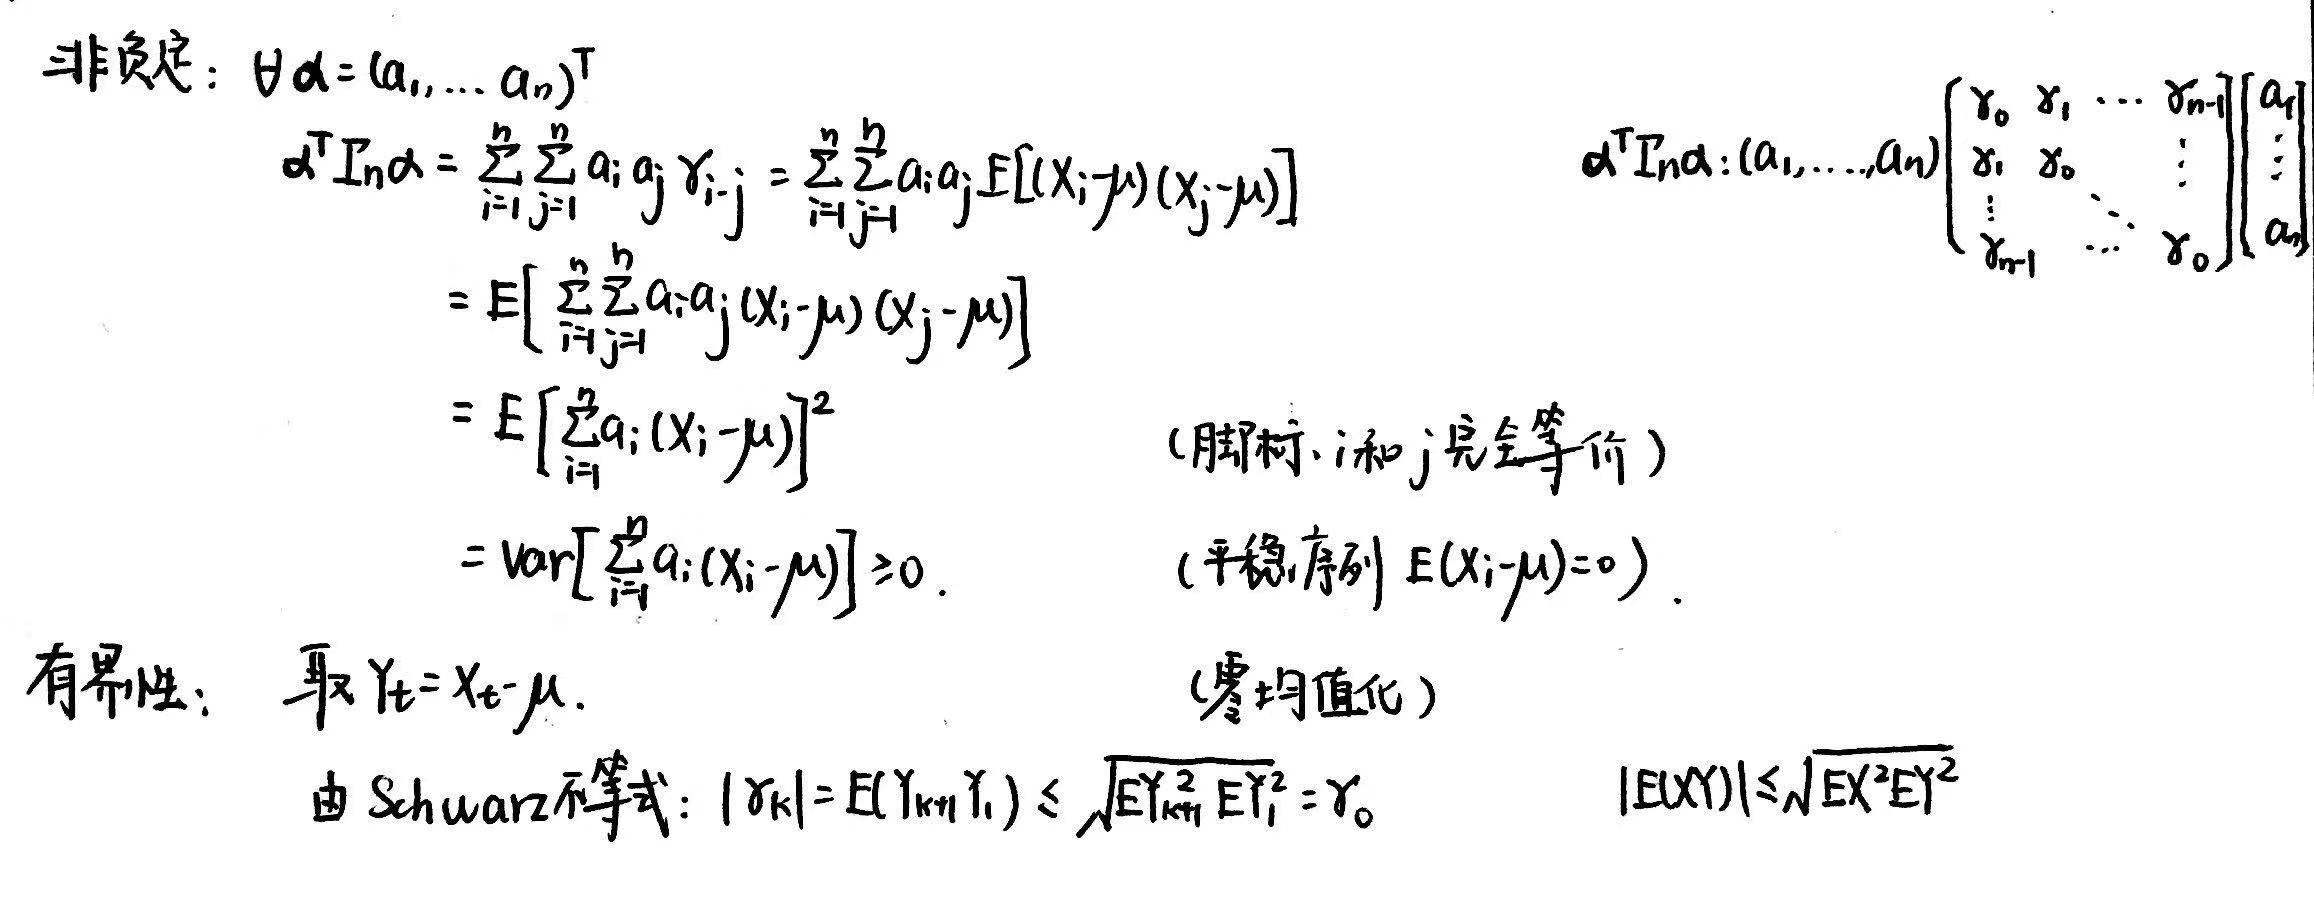 非负定: ∀α=(a₁,... aₙ)ᵀ
αᵀΓₙα = ∑ᵢ₌₁ⁿ ∑ⱼ₌₁ⁿ aᵢ aⱼ γᵢ₋ⱼ = ∑ᵢ₌₁ⁿ ∑ⱼ₌₁ⁿ aᵢaⱼE[(Xᵢ-μ)(Xⱼ-μ)]
αᵀΓₙα:(a₁,....,aₙ)[γ₀ γ₁ ... γₙ₋₁; γ₁ γ₀ ⋮; ⋮ ⋱; γₙ₋₁ ... γ₀][a₁ ⋮ aₙ]
= E[∑ᵢ₌₁ⁿ ∑ⱼ₌₁ⁿ aᵢaⱼ(Xᵢ-μ)(Xⱼ-μ)]
= E[∑ᵢ₌₁ⁿ aᵢ(Xᵢ-μ)]² (脚标i和j完全等价)
= Var[∑ᵢ₌₁ⁿ aᵢ(Xᵢ-μ)]≥0. (平稳序列 E(Xᵢ-μ)=0).
有界性: 取 Yₜ=Xₜ-μ. (零均值化)
由Schwarz不等式: |γₖ|=E(Yₖ₊₁Y₁) ≤ √(EYₖ₊₁² EY₁²) = γ₀ |E(XY)|≤√(EX²EY²)